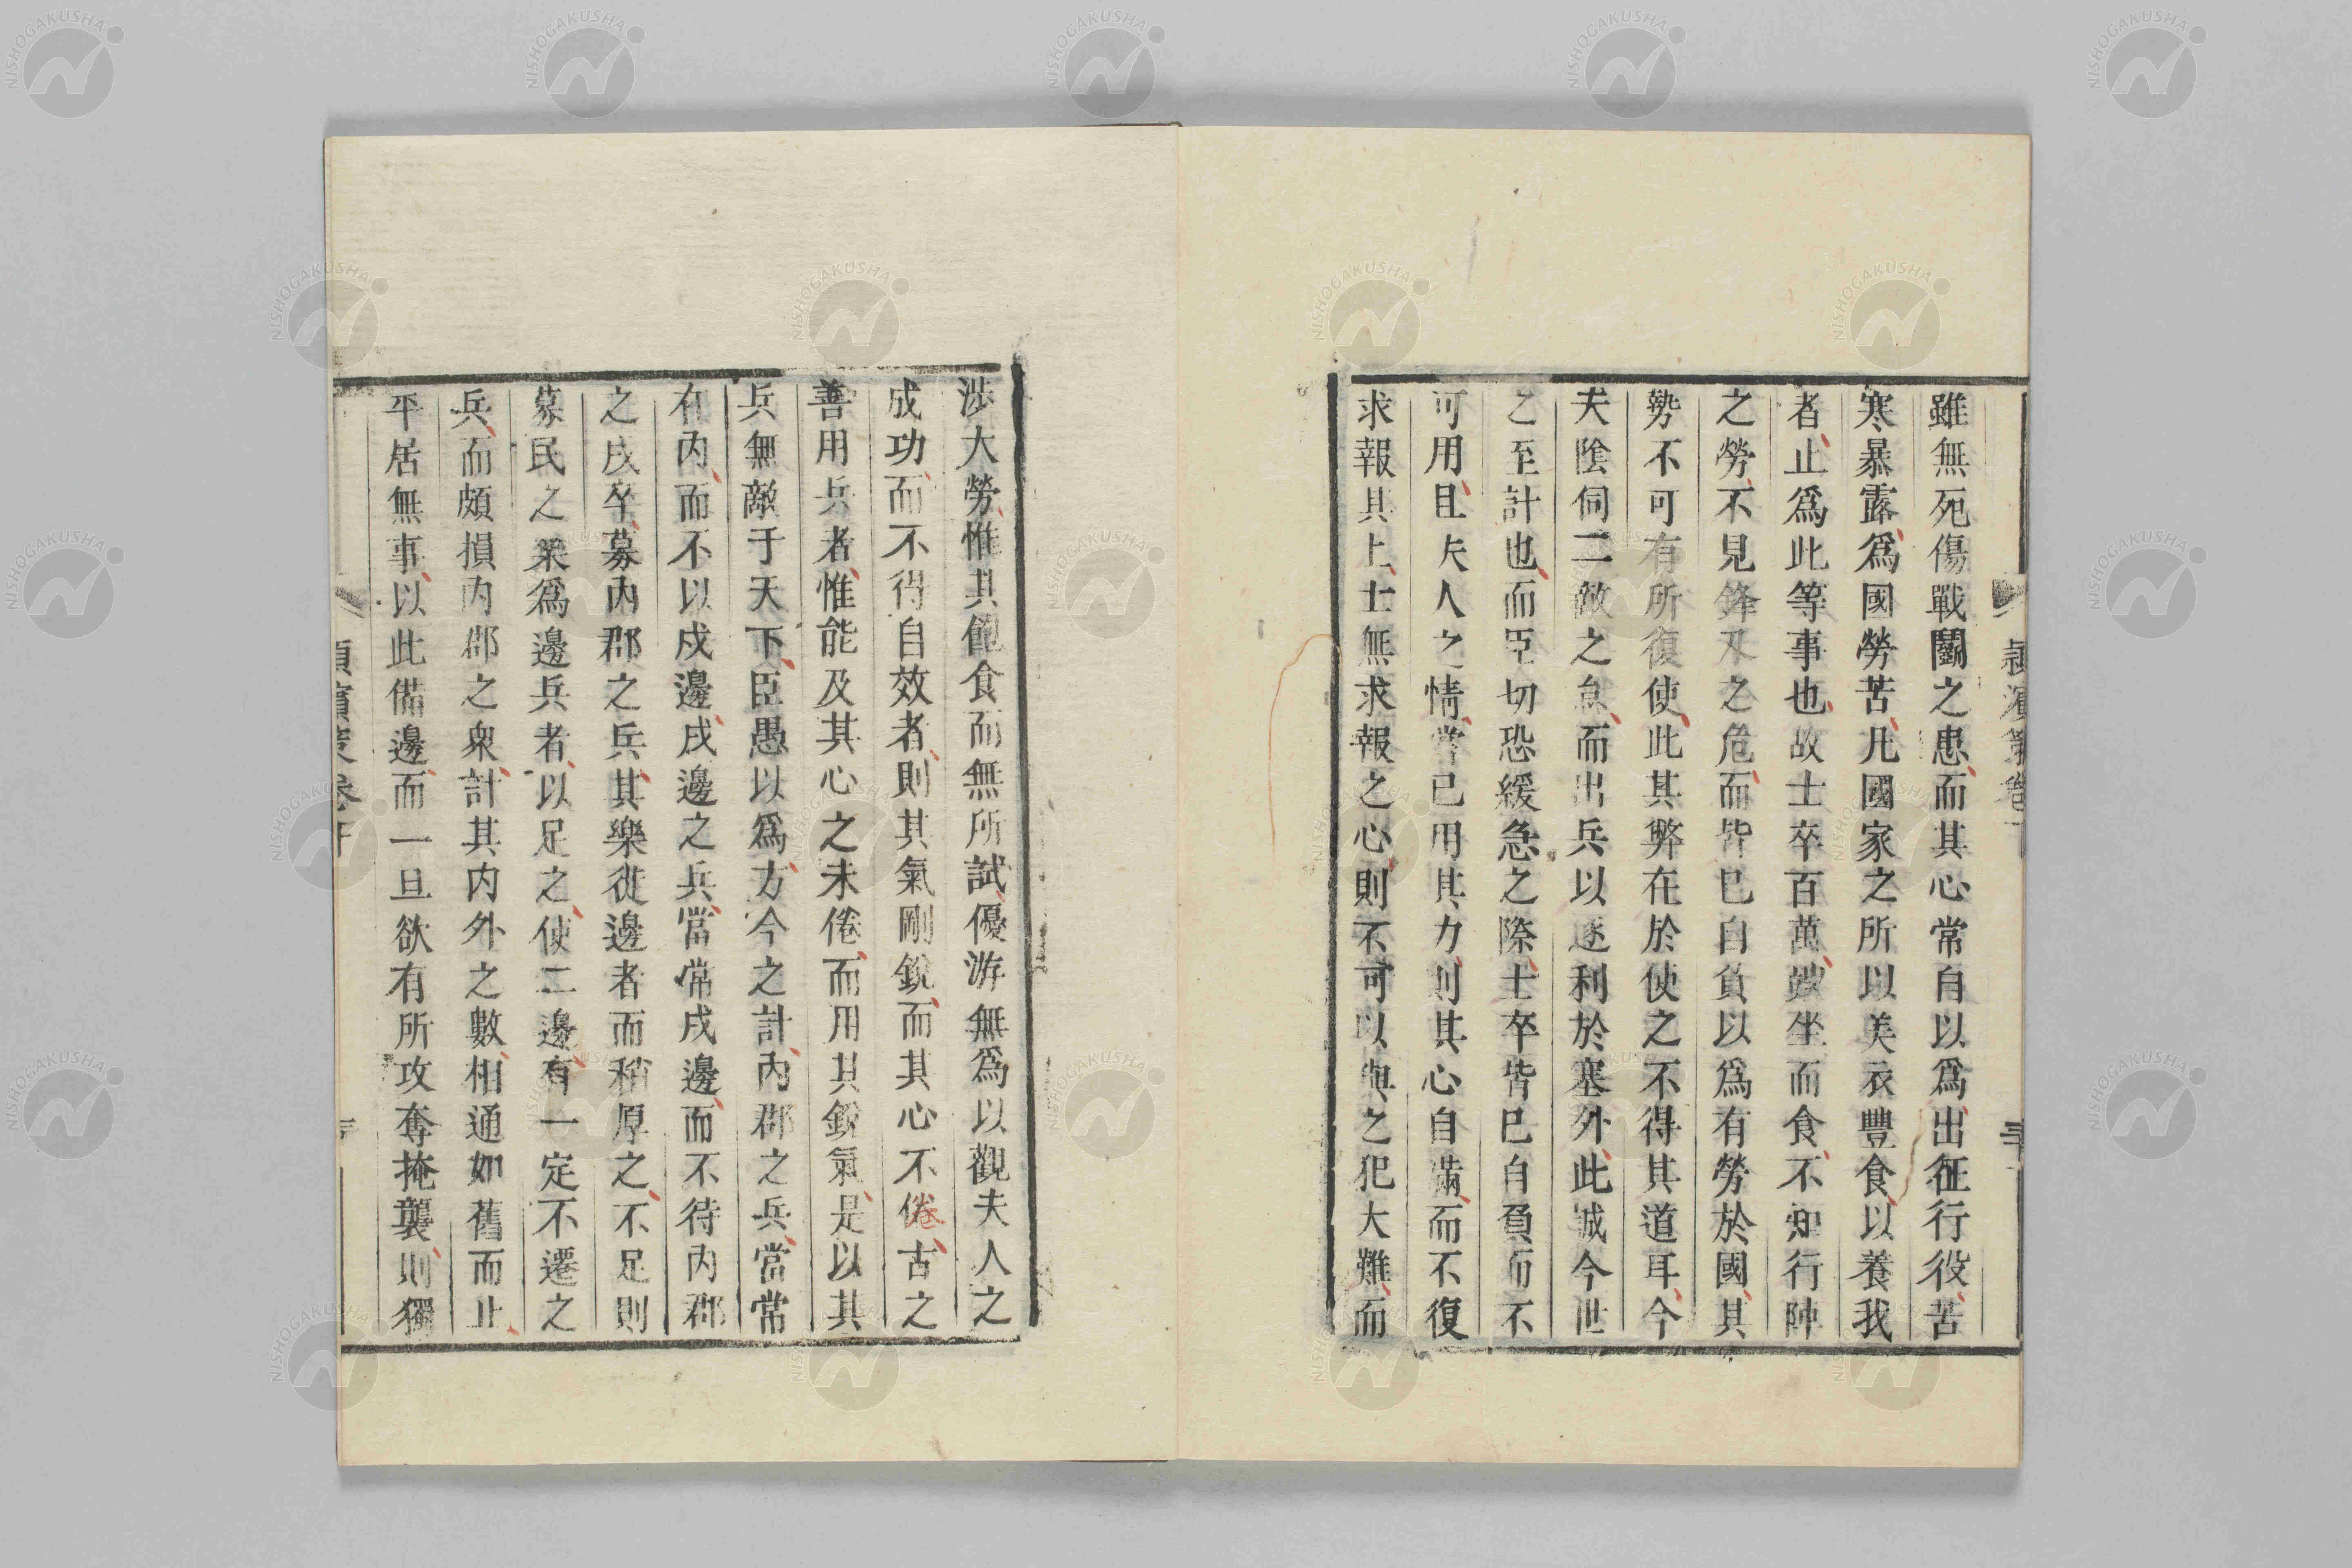 雖無死傷戰鬭之患而其心常自以爲出征行役苦
寒暴露爲國勞苦凡國家之所以美衣豐食以養我
者止爲此等事也故士卒百萬端坐而食不知行陣
之勞不見鋒刃之危而皆已自負以爲有勞於國其
勢不可有所復使此其弊在於使之不得其道耳今
夫陰伺二敵之怠而出兵以逐利於塞外此誠今世
之至計也而臣切恐緩急之際士卒皆已自負而不
可用且夫人之情嘗已用其力則其心自滿而不復
求報其上士無求報之心則不可以與之犯大難而
涉大勞惟其飽食而無所試優游無爲以觀夫人之
成功而不得自效者則其氣剛銳而其心不倦古之
善用兵者惟能及其心之未倦而用其銳氣是以其
兵無敵于天下臣愚以爲方今之計內郡之兵當常
在內而不以戍邊戍邊之兵當常戍邊而不待內郡
之戍卒募內郡之兵其樂徙邊者而稍厚之不足則
募民之樂爲邊兵者以足之使二邊有一定不遷之
兵而頗損內郡之衆計其內外之數相通如舊而止
平居無事以此備邊而一旦欲有所攻奪掩襲則獨
倦
潁濱策卷
NISHOGAKUSHA